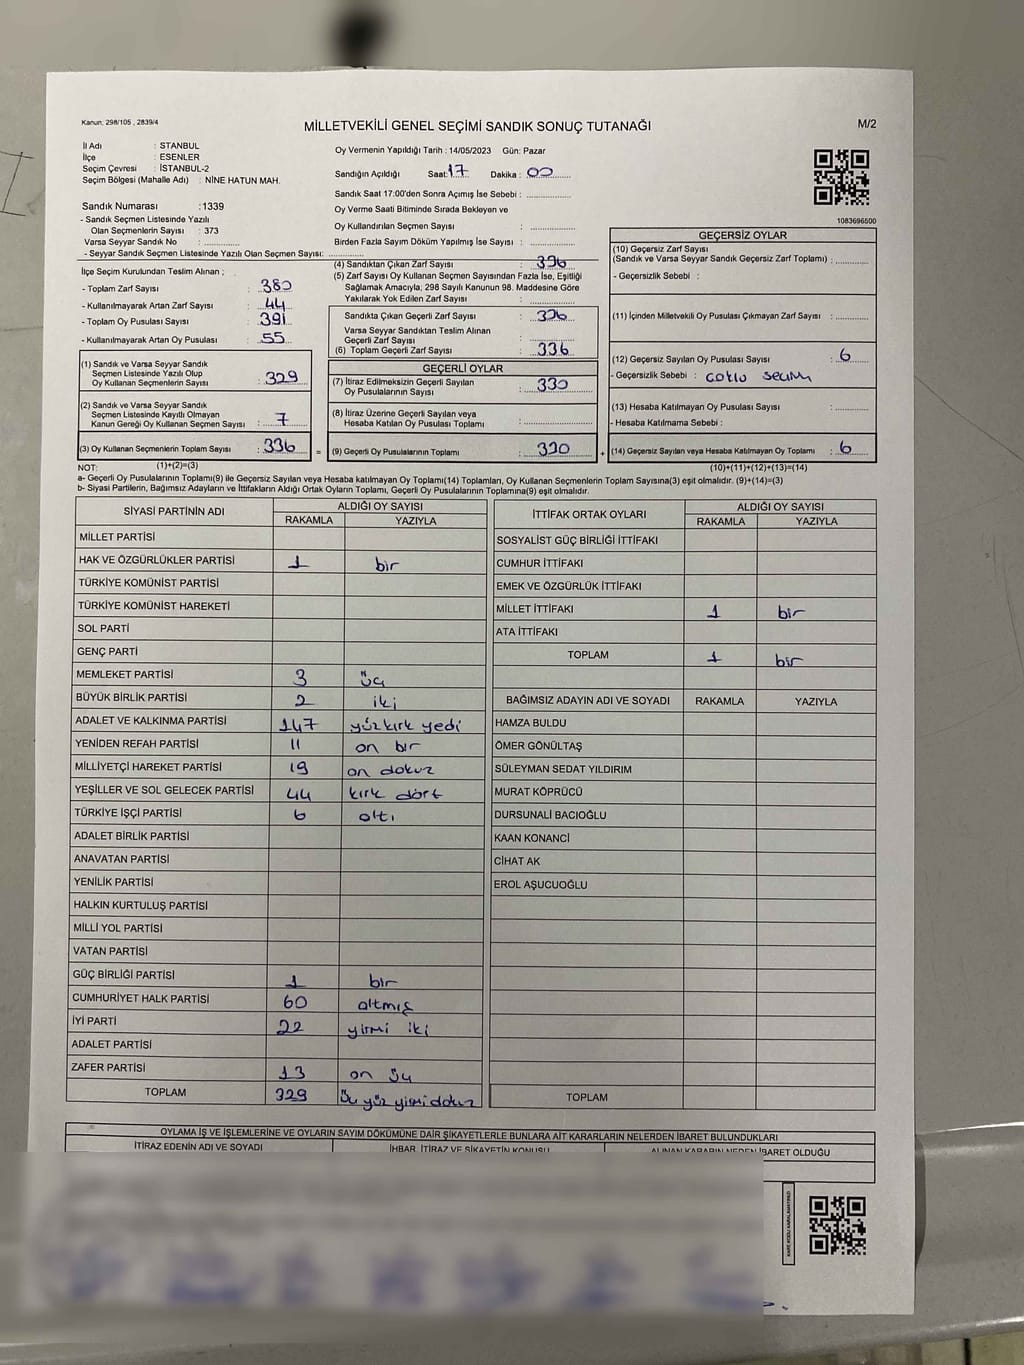 Kanun, 298/105 , 2839/4
MİLLETVEKİLİ GENEL SEÇİMİ SANDIK SONUÇ TUTANAĞI
M/2
İl Adı : STANBUL
İlçe : ESENLER
Seçim Çevresi : İSTANBUL-2
Seçim Bölgesi (Mahalle Adı) : NİNE HATUN MAH.
Sandık Numarası :1339
- Sandık Seçmen Listesinde Yazılı
Olan Seçmenlerin Sayısı : 373
Varsa Seyyar Sandık No :
- Seyyar Sandık Seçmen Listesinde Yazılı Olan Seçmen Sayısı:
Oy Vermenin Yapıldığı Tarih : 14/05/2023 Gün: Pazar
Sandığın Açıldığı Saat: 17 Dakika : 00
Sandık Saat 17:00'den Sonra Açımış İse Sebebi :
Oy Verme Saati Bitiminde Sırada Bekleyen ve
Oy Kullandırılan Seçmen Sayısı :
Birden Fazla Sayım Döküm Yapılmış İse Sayısı :
1083696500
İlçe Seçim Kurulundan Teslim Alınan ;
- Toplam Zarf Sayısı : 380
- Kullanılmayarak Artan Zarf Sayısı : 44
- Toplam Oy Pusulası Sayısı : 391
- Kullanılmayarak Artan Oy Pusulası : 55
(1) Sandık ve Varsa Seyyar Sandık
Seçmen Listesinde Yazılı Olup
Oy Kullanan Seçmenlerin Sayısı : 329
(2) Sandık ve Varsa Seyyar Sandık
Seçmen Listesinde Kayıtlı Olmayan
Kanun Gereği Oy Kullanan Seçmen Sayısı : 7
(3) Oy Kullanan Seçmenlerin Toplam Sayısı : 336
(4) Sandıktan Çıkan Zarf Sayısı : 336
(5) Zarf Sayısı Oy Kullanan Seçmen Sayısından Fazla İse, Eşitliği
Sağlamak Amacıyla, 298 Sayılı Kanunun 98. Maddesine Göre
Yakılarak Yok Edilen Zarf Sayısı :
Sandıkta Çıkan Geçerli Zarf Sayısı : 336
Varsa Seyyar Sandıktan Teslim Alınan
Geçerli Zarf Sayısı :
(6) Toplam Geçerli Zarf Sayısı : 336
GEÇERLİ OYLAR
(7) İtiraz Edilmeksizin Geçerli Sayılan
Oy Pusulalarının Sayısı : 330
(8) İtiraz Üzerine Geçerli Sayılan veya
Hesaba Katılan Oy Pusulası Toplamı :
= (9) Geçerli Oy Pusulalarının Toplamı : 330 +
GEÇERSİZ OYLAR
(10) Geçersiz Zarf Sayısı
(Sandık ve Varsa Seyyar Sandık Geçersiz Zarf Toplamı) :
- Geçersizlik Sebebi :
(11) İçinden Milletvekili Oy Pusulası Çıkmayan Zarf Sayısı :
(12) Geçersiz Sayılan Oy Pusulası Sayısı : 6
- Geçersizlik Sebebi :
(13) Hesaba Katılmayan Oy Pusulası Sayısı :
- Hesaba Katılmama Sebebi :
(14) Geçersiz Sayılan veya Hesaba Katılmayan Oy Toplamı : 6
NOT: (1)+(2)=(3)
(10)+(11)+(12)+(13)=(14)
a- Geçerli Oy Pusulalarının Toplamı(9) ile Geçersiz Sayılan veya Hesaba katılmayan Oy Toplamı(14) Toplamları, Oy Kullanan Seçmenlerin Toplam Sayısına(3) eşit olmalıdır. (9)+(14)=(3)
b- Siyasi Partilerin, Bağımsız Adayların ve İttifakların Aldığı Ortak Oyların Toplamı, Geçerli Oy Pusulalarının Toplamına(9) eşit olmalıdır.
SİYASİ PARTİNİN ADI ALDIĞI OY SAYISI
RAKAMLA YAZIYLA
MİLLET PARTİSİ
HAK VE ÖZGÜRLÜKLER PARTİSİ 1 bir
TÜRKİYE KOMÜNİST PARTİSİ
TÜRKİYE KOMÜNİST HAREKETİ
SOL PARTİ
GENÇ PARTİ
MEMLEKET PARTİSİ 3 üç
BÜYÜK BİRLİK PARTİSİ 2 iki
ADALET VE KALKINMA PARTİSİ 147 yüzkırk yedi
YENİDEN REFAH PARTİSİ 11 on bir
MİLLİYETÇİ HAREKET PARTİSİ 19 on dokuz
YEŞİLLER VE SOL GELECEK PARTİSİ 44 kırk dört
TÜRKİYE İŞÇİ PARTİSİ 6 altı
ADALET BİRLİK PARTİSİ
ANAVATAN PARTİSİ
YENİLİK PARTİSİ
HALKIN KURTULUŞ PARTİSİ
MİLLİ YOL PARTİSİ
VATAN PARTİSİ
GÜÇ BİRLİĞİ PARTİSİ 1 bir
CUMHURİYET HALK PARTİSİ 60 altmış
İYİ PARTİ 22 yirmi iki
ADALET PARTİSİ
ZAFER PARTİSİ 13 on üç
TOPLAM 329 üç yüz yirmi dokuz
İTTİFAK ORTAK OYLARI ALDIĞI OY SAYISI
RAKAMLA YAZIYLA
SOSYALİST GÜÇ BİRLİĞİ İTTİFAKI
CUMHUR İTTİFAKI
EMEK VE ÖZGÜRLÜK İTTİFAKI
MİLLET İTTİFAKI 1 bir
ATA İTTİFAKI
TOPLAM 1 bir
BAĞIMSIZ ADAYIN ADI VE SOYADI RAKAMLA YAZIYLA
HAMZA BULDU
ÖMER GÖNÜLTAŞ
SÜLEYMAN SEDAT YILDIRIM
MURAT KÖPRÜCÜ
DURSUNALİ BACIOĞLU
KAAN KONANCİ
CİHAT AK
EROL AŞUCUOĞLU
TOPLAM
OYLAMA İŞ VE İŞLEMLERİNE VE OYLARIN SAYIM DÖKÜMÜNE DAİR ŞİKAYETLERLE BUNLARA AİT KARARLARIN NELERDEN İBARET BULUNDUKLARI
İTİRAZ EDENİN ADI VE SOYADI İHBAR, İTİRAZ VE ŞİKAYETİN KONUSU ALINAN KARARIN NEDEN İBARET OLDUĞU